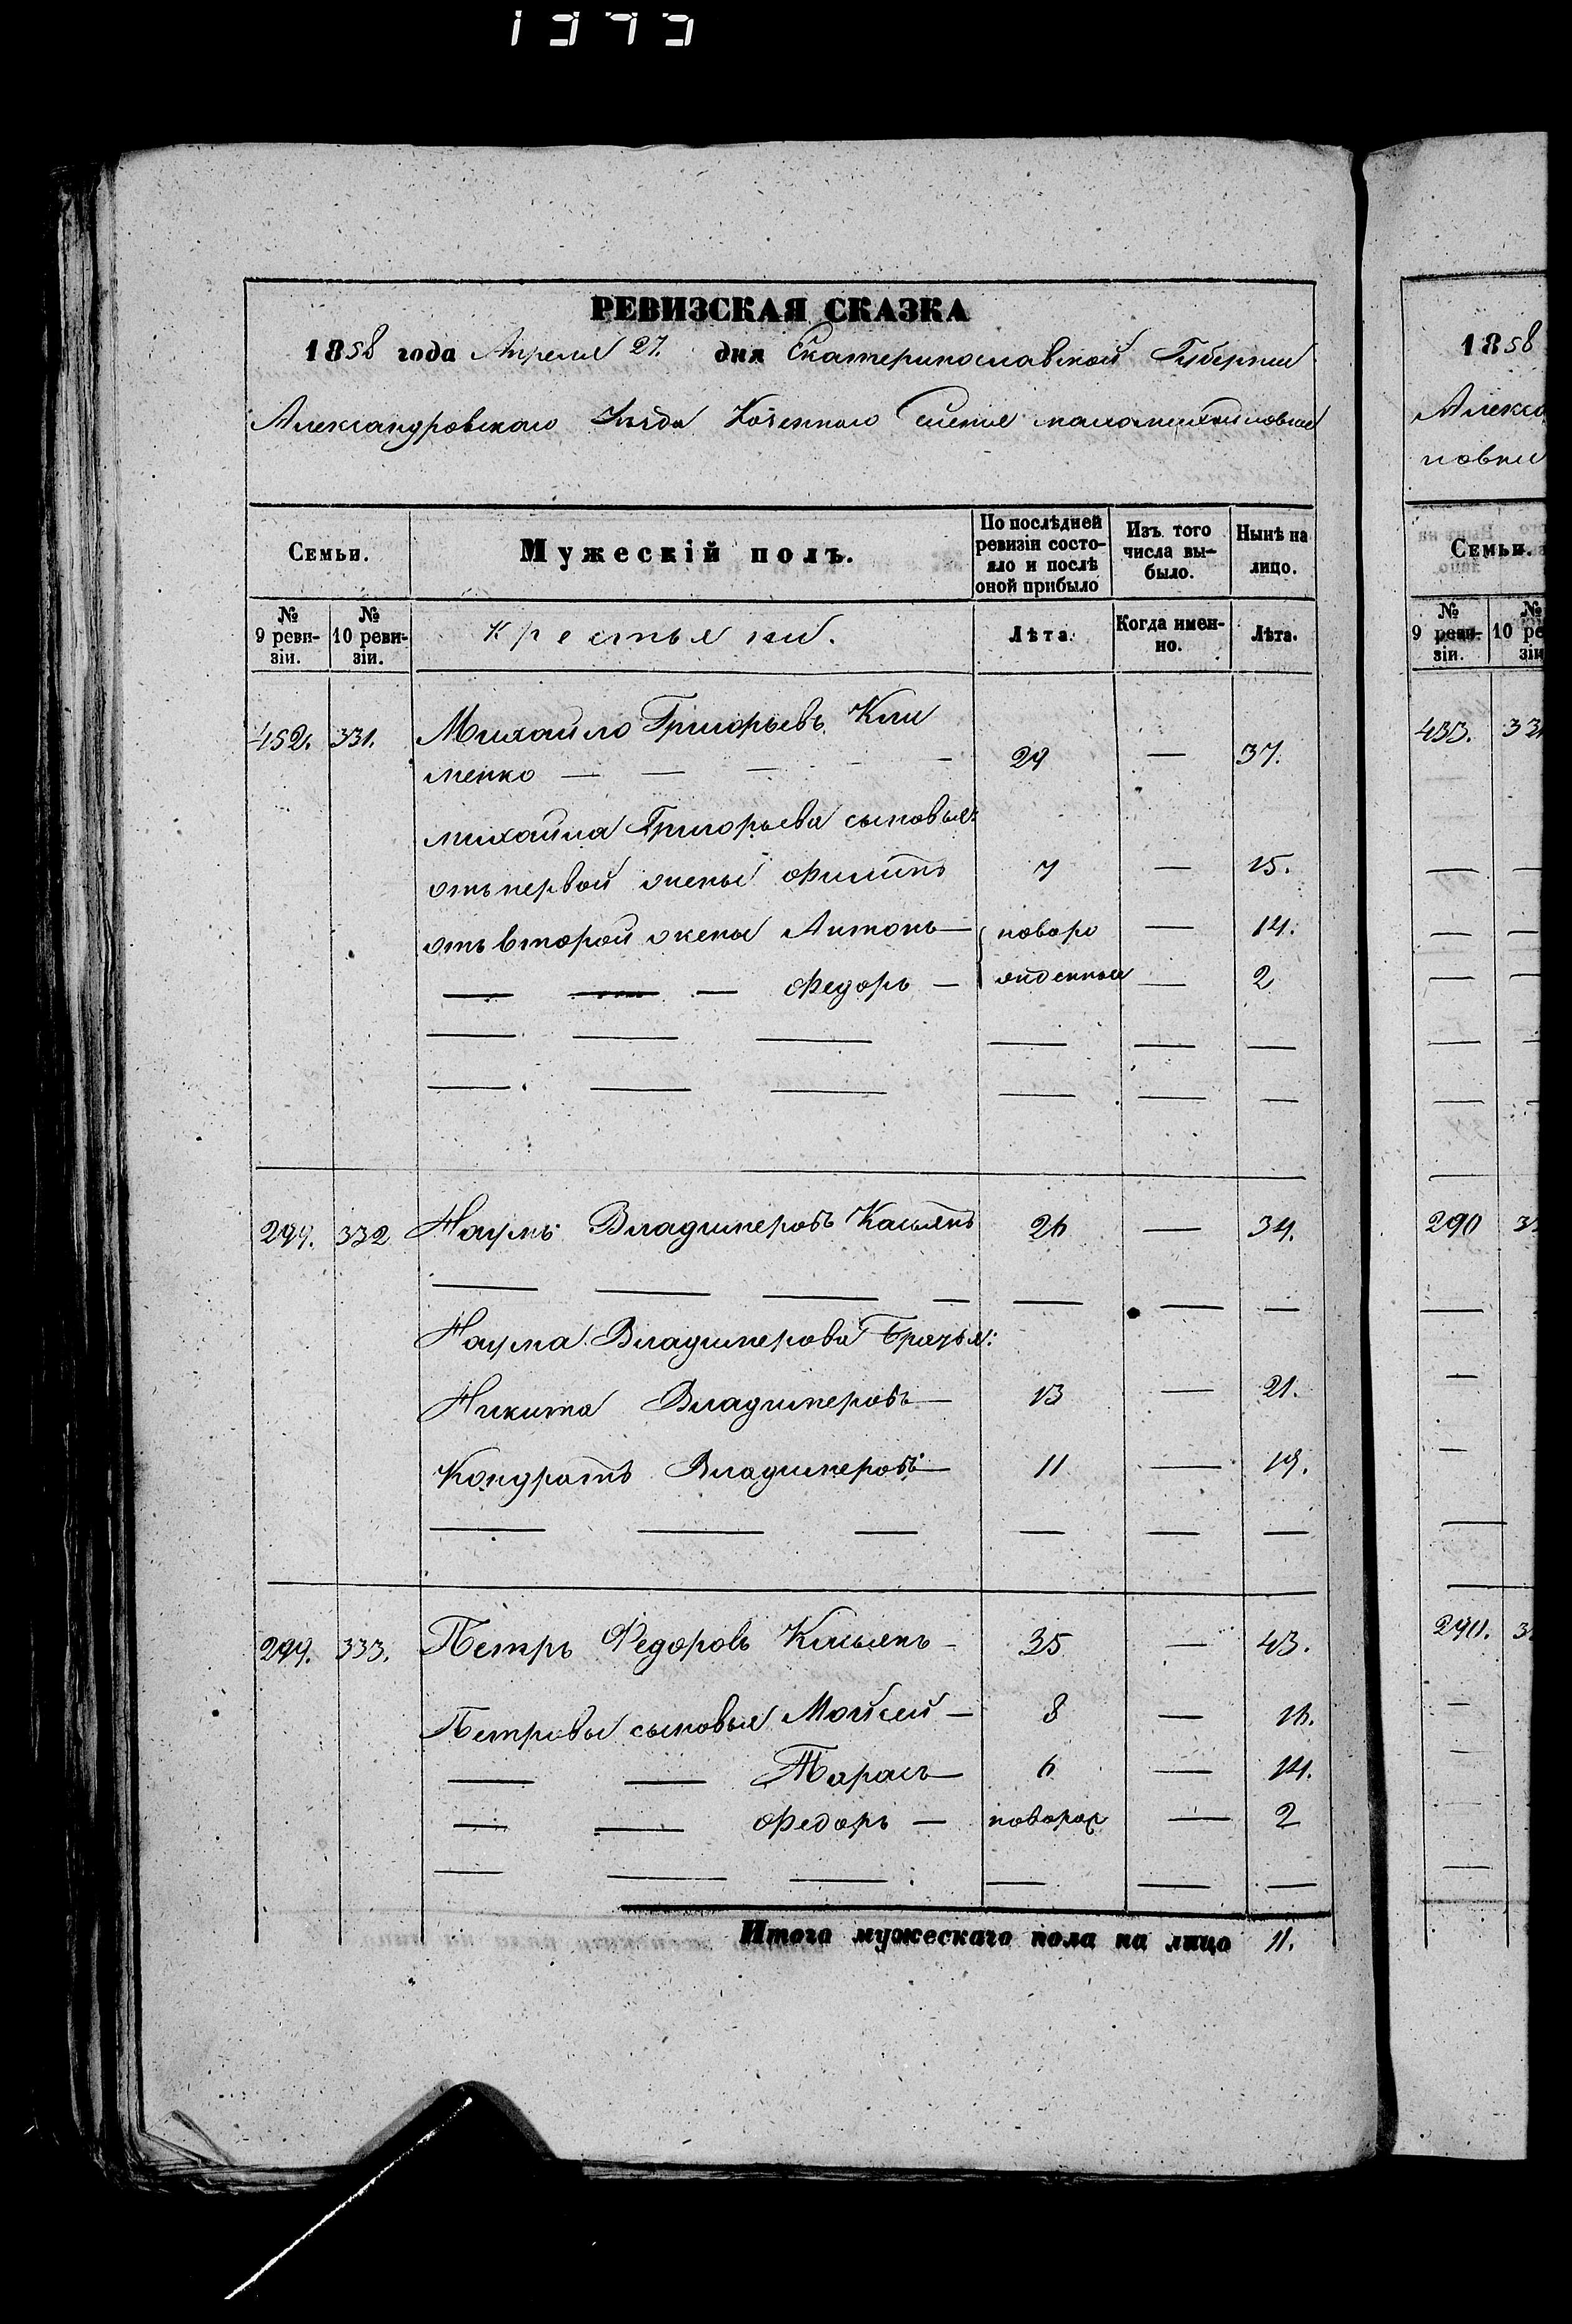 РЕВИЗСКАЯ СКАЗКА
1858 года Апреля 27. дня Екатеринославской Губернии
Александровского Уѣзда Козенного Селения маломихайловки
Семьи. Мужескій полъ. По послѣдней ревизіи состояло и послѣ оной прибыло Изъ того числа выбыло. Нынѣ на лицо.
№ 9 ревизіи. № 10 ревизіи. крестьяни. Лѣта. Когда именно. Лѣта.
452. 331. Михайло Григорьевъ Кли
менко — — — — — 29 — 37.
михайла Григорьева сыновья:
отъ первой жены Филипъ 7 — 15.
отъ второй жены Антонъ — новоро — 14.
— — — Федоръ — жденные — 2
299. 332 Наумъ Владимеровъ Касьянъ 26 — 34.
Наума Владимерова Братья:
Никита Владимеровъ — 13 — 21.
Кондратъ Владимеровъ — 11 — 19.
299. 333. Петръ Федоровъ Касьянъ — 35 — 43.
Петровы сыновья Мойсей — 8 — 16.
— — Тарасъ — 6 — 14.
— — Федоръ —новорож — 2
Итого мужескаго пола на лицо 11.
1858
Алекса
новки
Семьи.
№ 9 ревизіи. № 10 ре
433. 33
290 3
290. 3